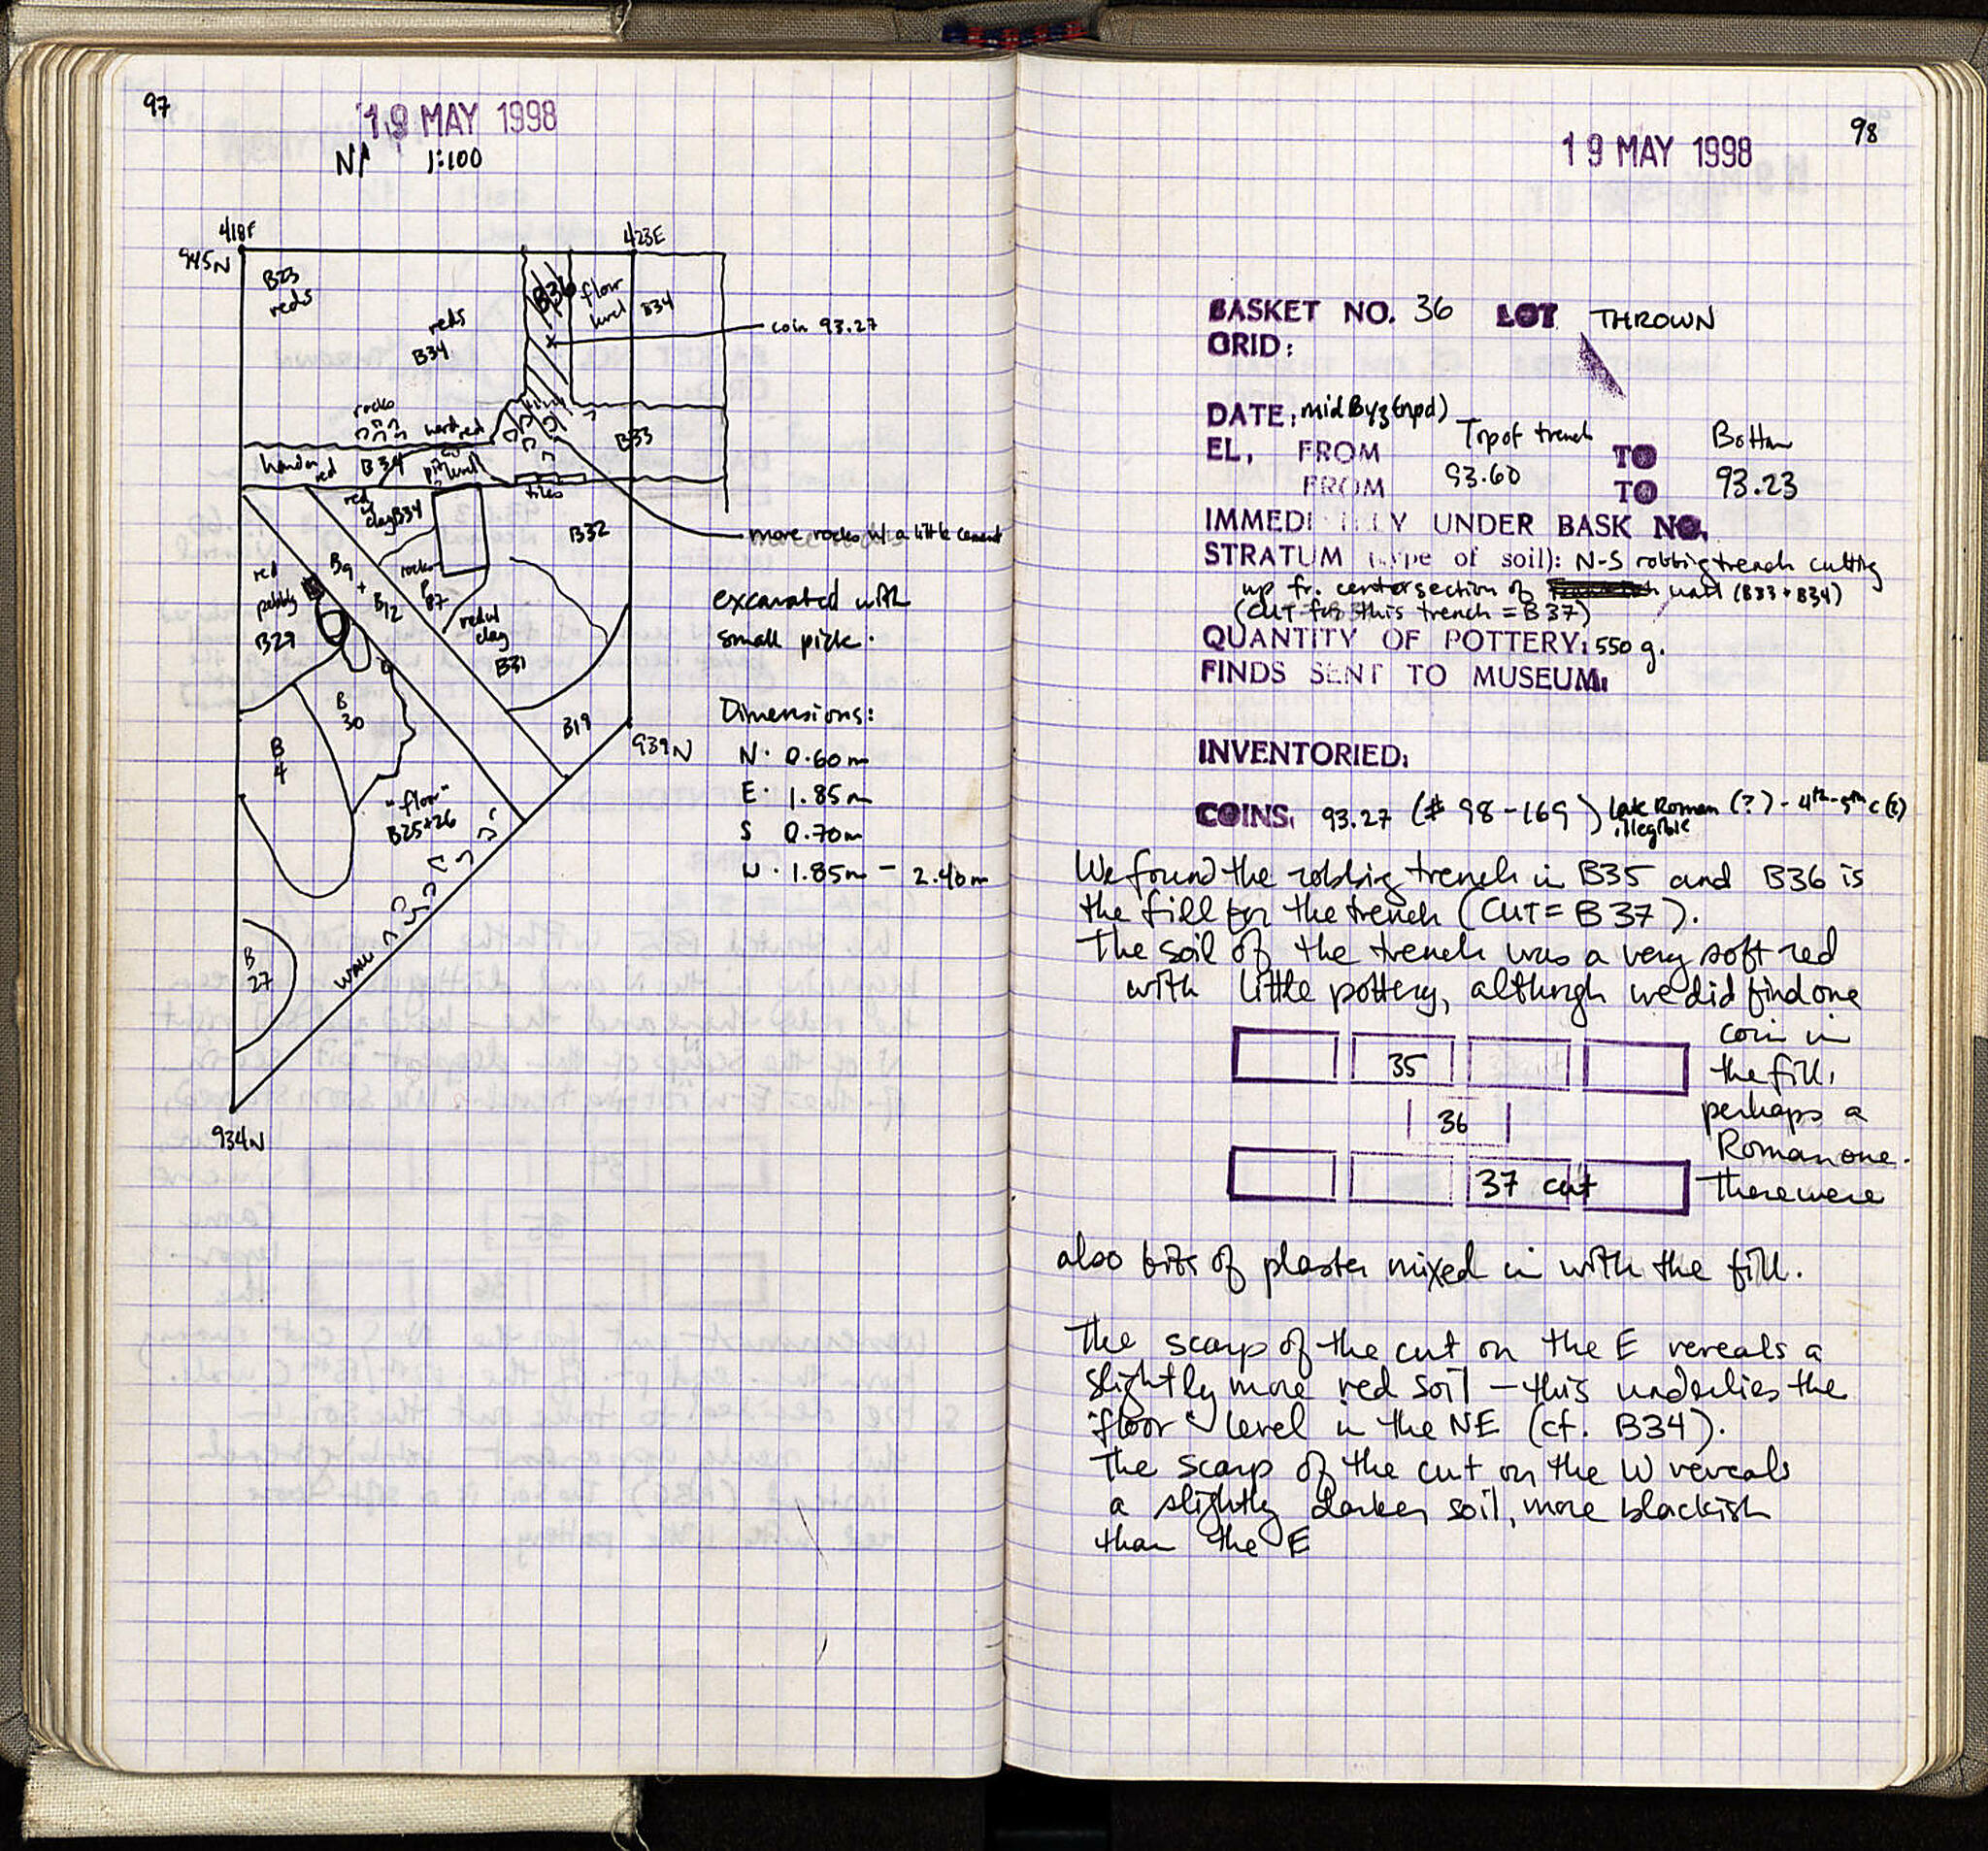 97
19 MAY 1998
N 1:100
418E
423E
945N
B23
reds
reds
B34
B36
floor
level
B34
coin 93.27
rocks
hard red
B33
harder
red
B34
tiles
red
clay B34
B32
more rocks w/ a little cement
B9
+
B12
red
pebbly
B29
rocks
P.
87
red w/
clay
B31
excavated with
small pick.
B
30
B19
939N
B
4
"floor"
B25+26
Dimensions:
N. 0.60m
E. 1.85m
S 0.70m
W. 1.85m - 2.40m
B
27
wall
934N
98
19 MAY 1998
BASKET NO. 36 LOT THROWN
GRID:
DATE: mid Byz (npd)
Top of trench Bottom
EL, FROM 93.60 TO 93.23
FROM TO
IMMEDI LY UNDER BASK NO.
STRATUM (type of soil): N-S robbing trench cutting
up fr. center section of wall (B33+B34)
(CUT for this trench = B37)
QUANTITY OF POTTERY: 550 g.
FINDS SENT TO MUSEUM:
INVENTORIED:
COINS: 93.27 (# 98-169) late Roman (?) - 4th-5th c (?)
illegible
We found the robbing trench in B35 and B36 is
the fill for the trench (CUT = B37).
The soil of the trench was a very soft red
with little pottery, although we did find one
coin in
35
the fill,
perhaps a
36
Roman one.
37 cut
There were
also bits of plaster mixed in with the fill.
The scarp of the cut on the E reveals a
slightly more red soil - this underlies the
"floor" level in the NE (cf. B34).
The scarp of the cut on the W reveals
a slightly darker soil, more blackish
than the E